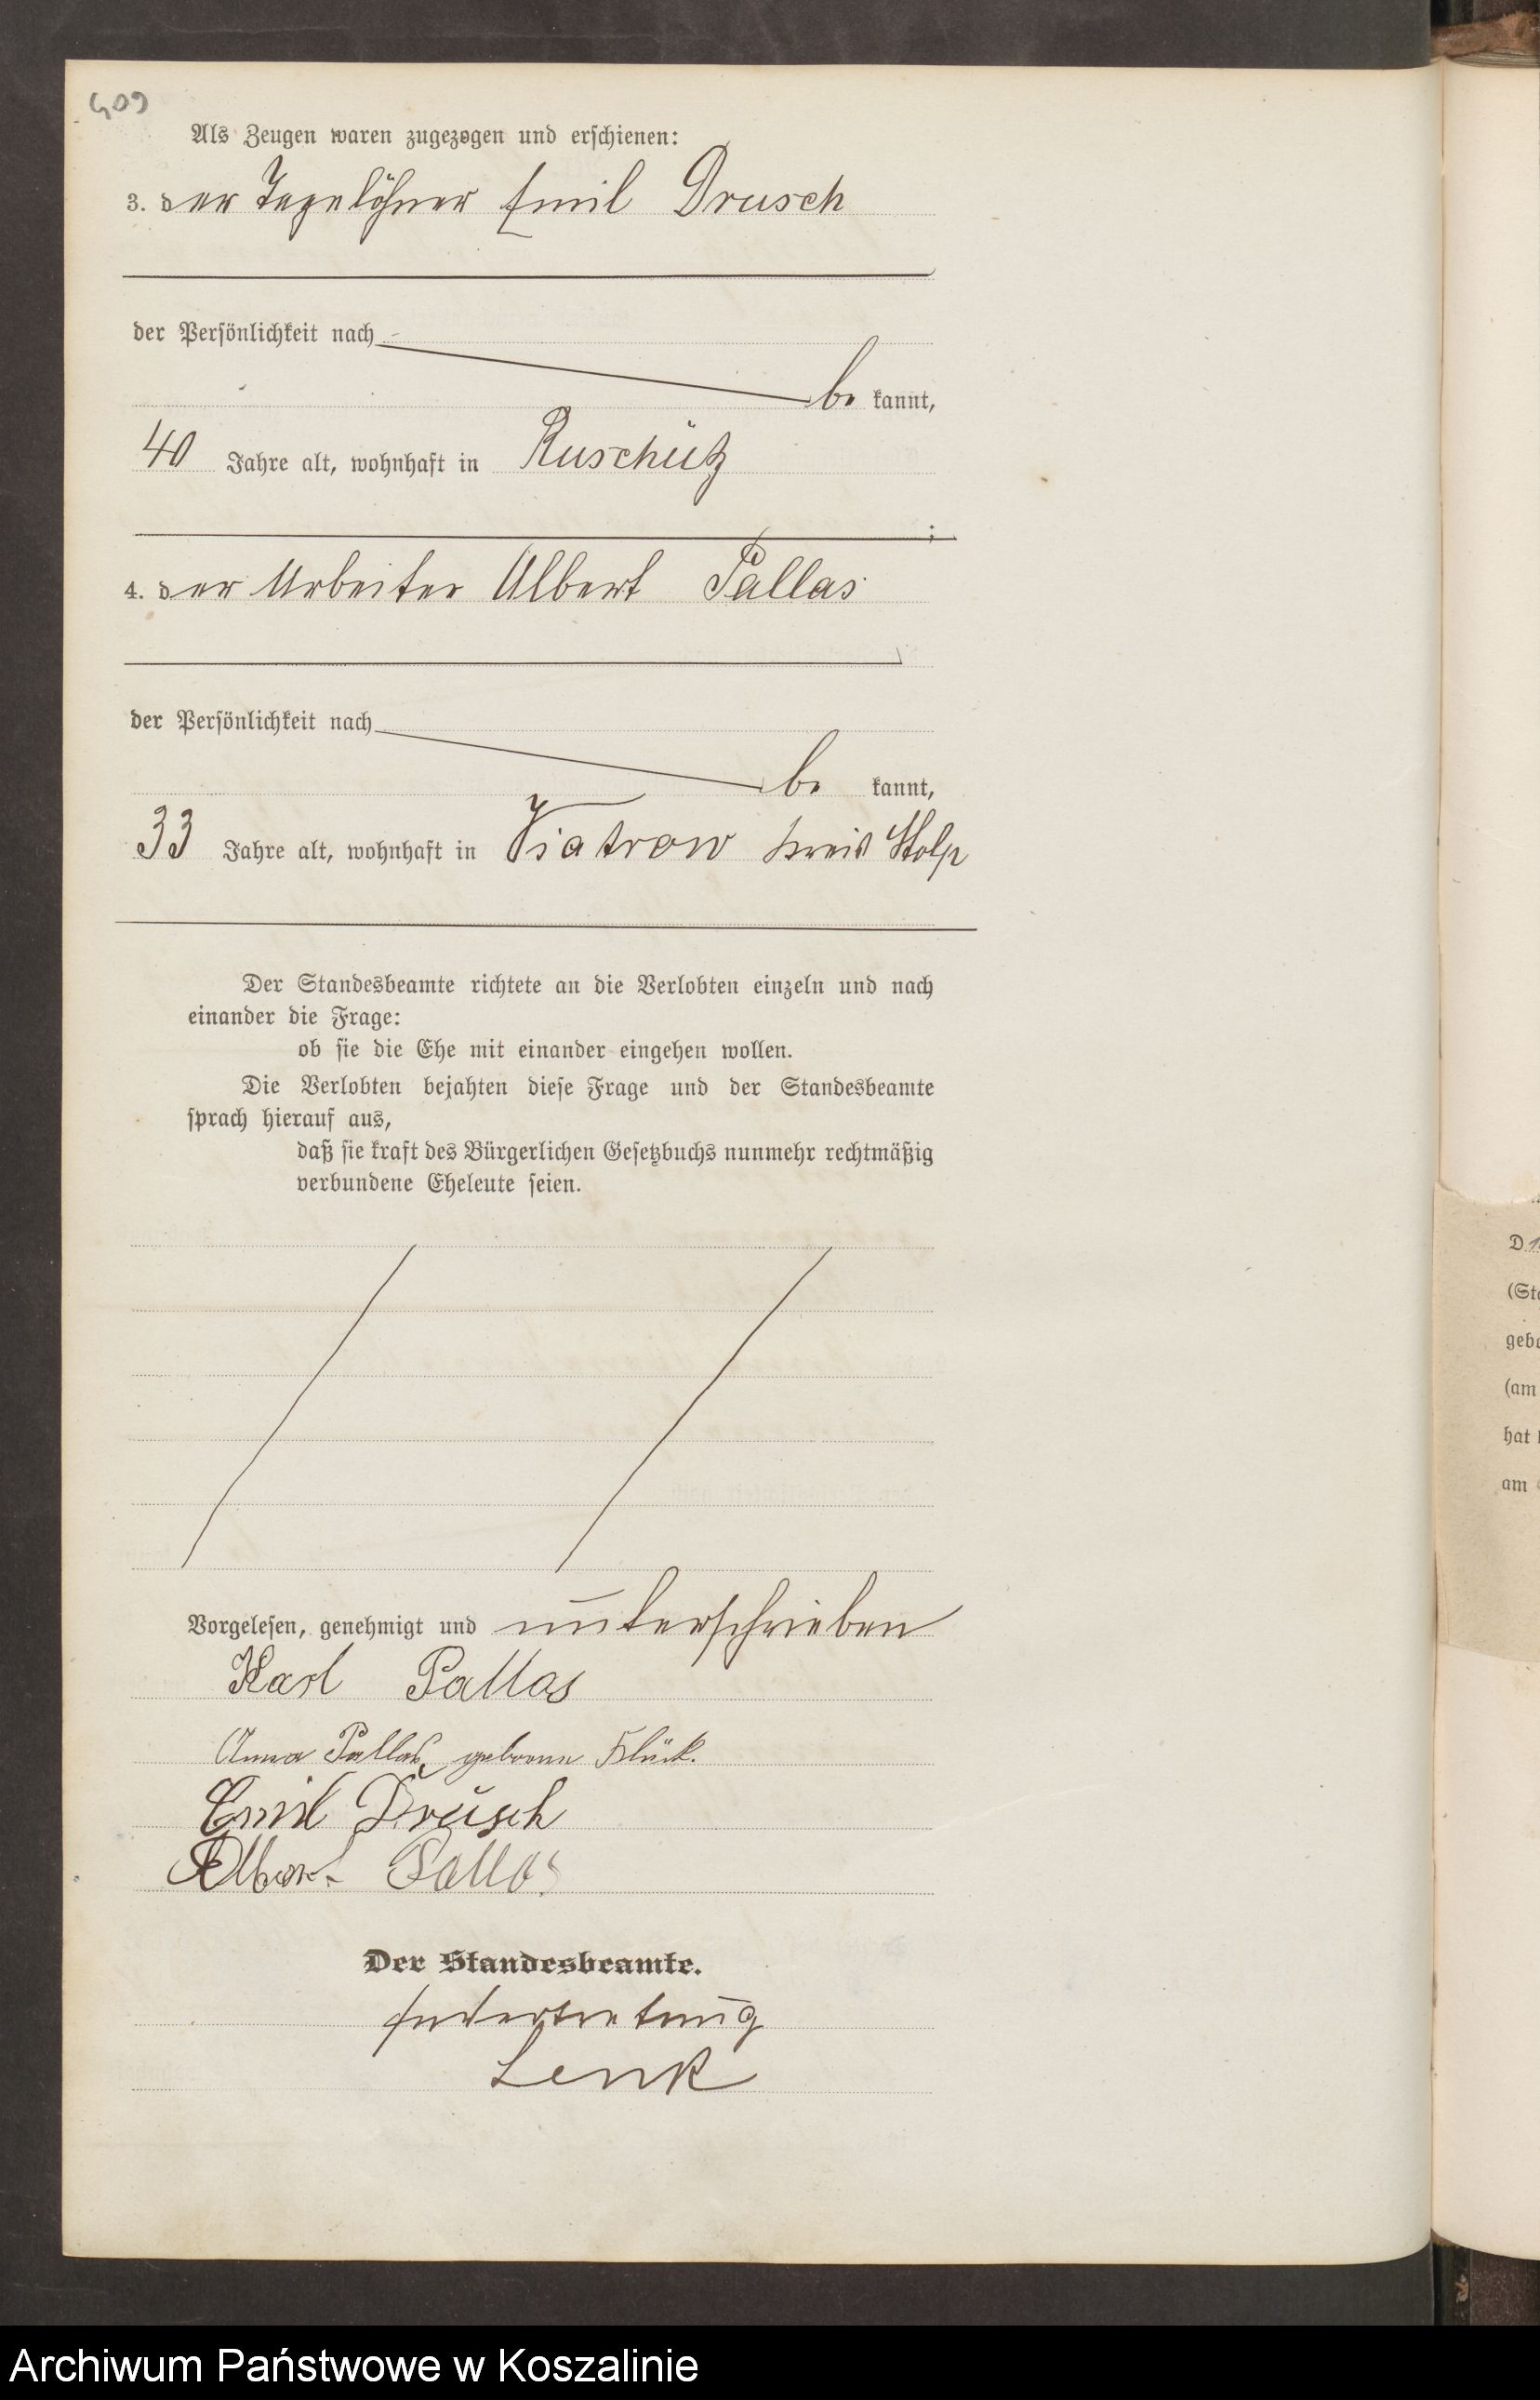 409
Als Zeugen waren zugezogen und erschienen:
3. der Tagelöhner Emil Drusch
der Persönlichkeit nach
be kannt,
40 Jahre alt, wohnhaft in Ruschütz
;
4. der Arbeiter Albert Pallas
der Persönlichkeit nach
be kannt,
33 Jahre alt, wohnhaft in Viatrow Kreis Stolp
Der Standesbeamte richtete an die Verlobten einzeln und nach
einander die Frage:
ob sie die Ehe mit einander eingehen wollen.
Die Verlobten bejahten diese Frage und der Standesbeamte
sprach hierauf aus,
daß sie kraft des Bürgerlichen Gesetzbuchs nunmehr rechtmäßig
verbundene Eheleute seien.
Vorgelesen, genehmigt und unterschrieben
Karl Pallas
Anna Pallas, geborene Klück.
Emil Drusch
Albert Pallas
Der Standesbeamte.
In Vertretung
Lenk
D
(Sta
gebo
(am
hat
am
Archiwum Państwowe w Koszalinie